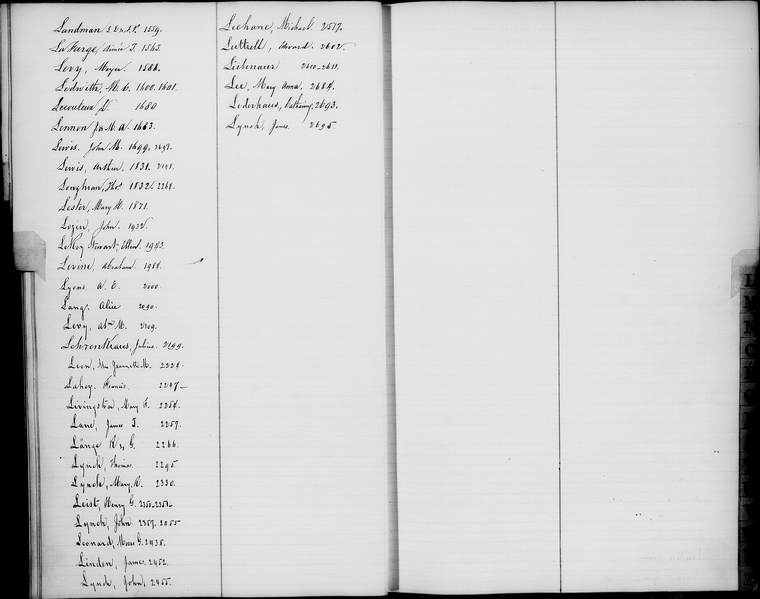 Landman 1559.
La Farge, Aimée T. 1563.
Levy, Meyer. 1588.
Ledwith, M. C. 1600. 1601.
Lecouteux 1680
Lennon Jas M. A. 1683.
Lewis. John M. 1699.
Lewis, Arthur. 1831. 2198.
Loughran, Thos. 1832. 2268.
Lester, Mary H. 1871.
Lozier, John. 1932.
LeRoy Stewart, 1943.
Levine, Abraham. 1988.
Lyons. W. C. 2000.
Lang. Alice 2090.
Levy, M. 2109.
Lehrenkraus, Julius. 2199.
Leon, Mrs Jeannette M. 2228.
Lahey. Francis. 2247
Livingston, Mary C. 2258.
Lane, James T. 2257.
Lange H G. 2266.
Lynch, Thomas. 2295
Lynch, Mary A. 2330.
Leist, Henry G. 2350
Lynch, John 2357. 2055
Leonard, Moses G. 2435.
Linden, James. 2452.
Lynch, John, 2455.
Leehane, Michael. 2517.
Luttrell, Edward. 2602.
Liebenauer 2610-2611.
Lee, Mary Anna. 2684.
Lederhaus, 2693.
Lynch, James. 2695.
L
M
N
O